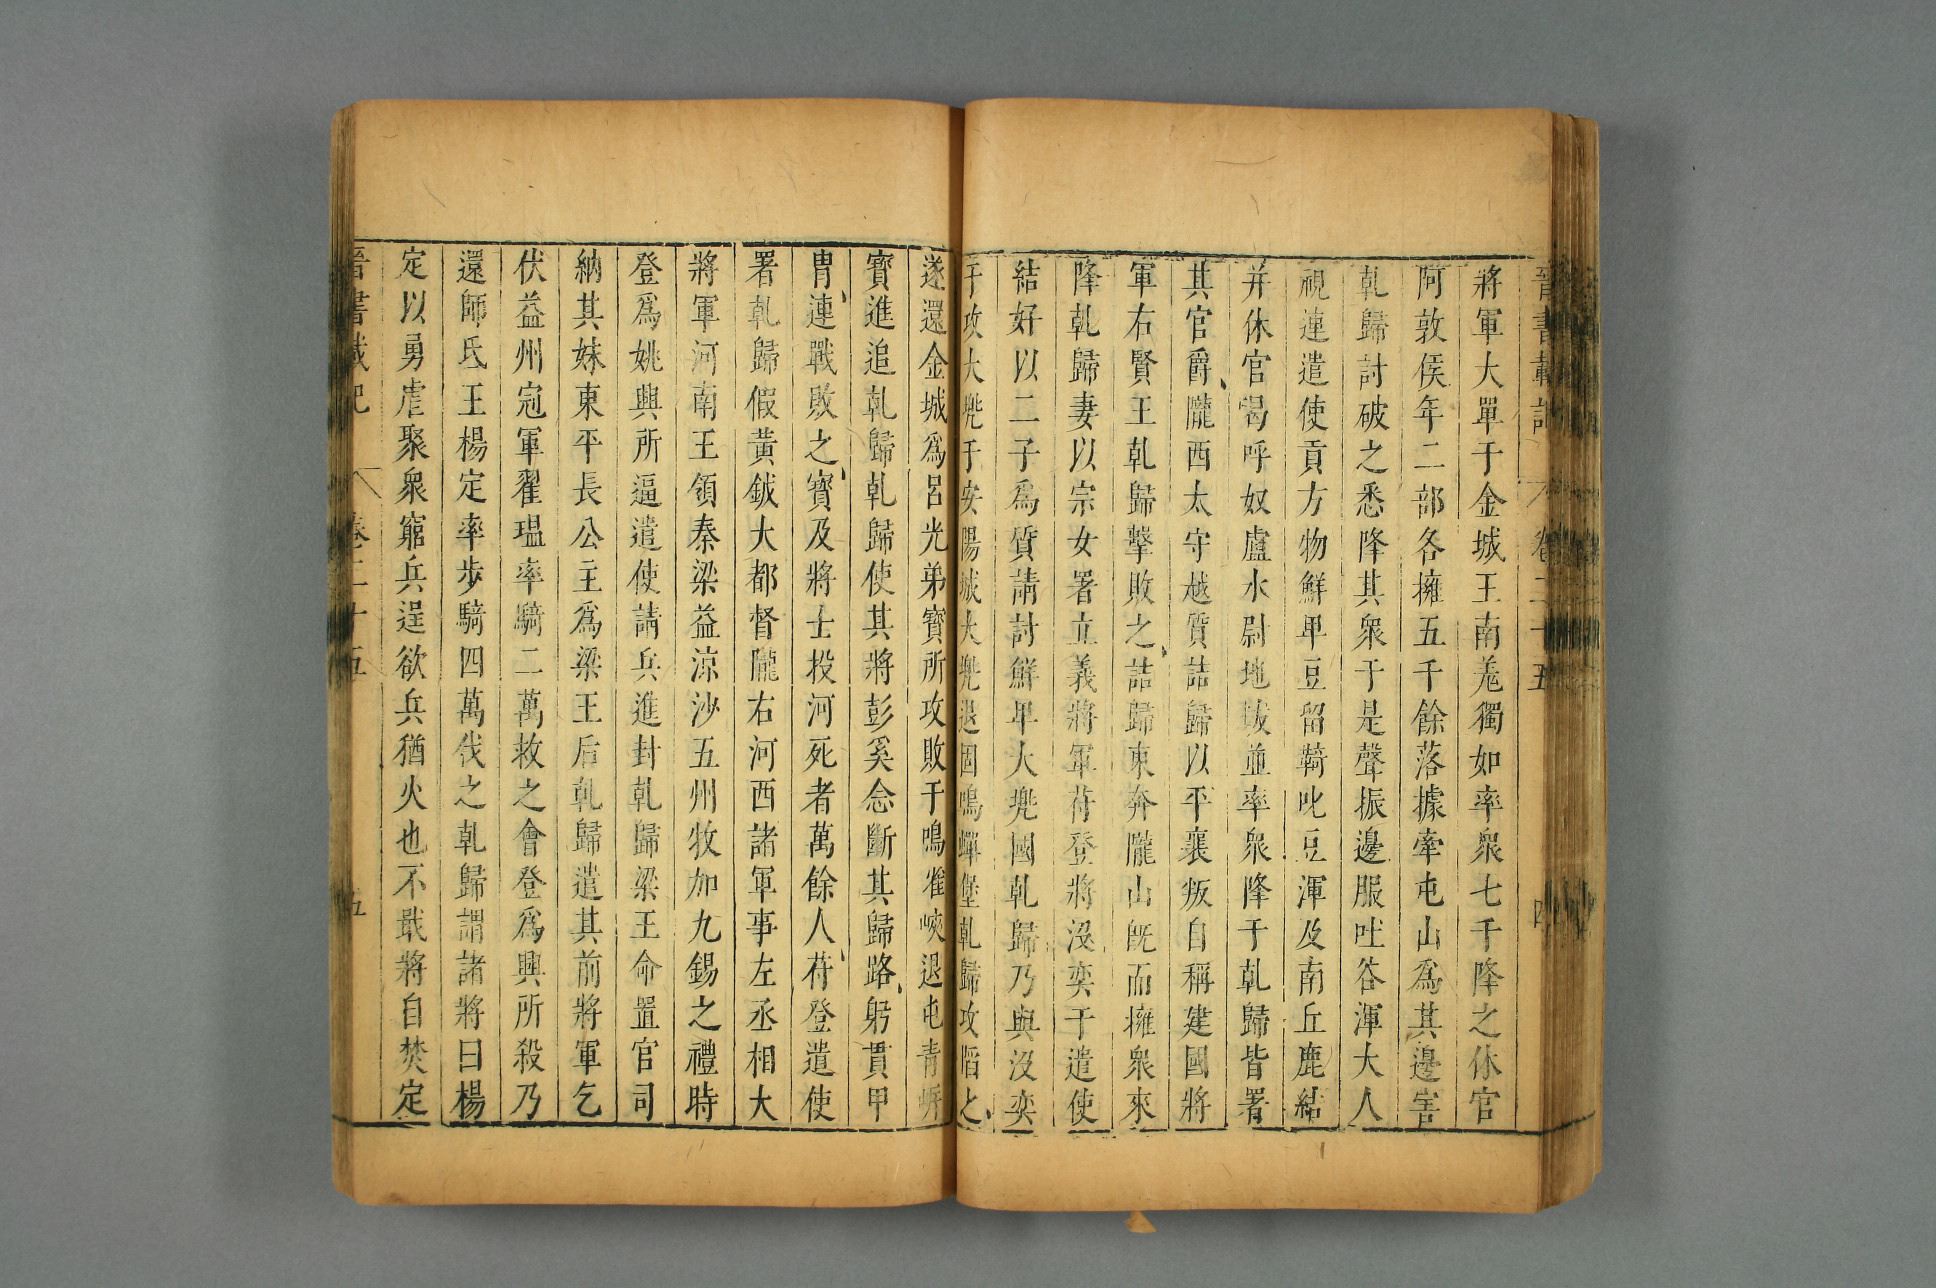 晉書載記 卷二十五 四
將軍大單于金城王南羌獨如率衆七千降之休官
阿敦侯年二部各擁五千餘落據牽屯山爲其邊害
乹歸討破之悉降其衆于是聲振邊服吐谷渾大人
視連遣使貢方物鮮卑豆留䩭叱豆渾及南丘鹿結
并休官曷呼奴盧水尉地拔並率衆降于乹歸皆署
其官爵隴西太守越質詰歸以平襄叛自稱建國將
軍右賢王乹歸擊敗之詰歸東奔隴山旣而擁衆來
降乹歸妻以宗女署立義將軍苻登將沒奕于遣使
結好以二子爲質請討鮮卑大兠國乹歸乃與沒奕
于攻大兠于安陽城大兠退固鳴蟬堡乹歸攻陷之
遂還金城爲呂光弟寶所攻敗于鳴雀峽退屯靑岍
寶進追乹歸乹歸使其將彭奚念斷其歸路躬貫甲
冑連戰敗之寶及將士投河死者萬餘人苻登遣使
署乹歸假黃鉞大都督隴右河西諸軍事左丞相大
將軍河南王領秦梁益涼沙五州牧加九錫之禮時
登爲姚興所逼遣使請兵進封乹歸梁王命置官司
納其妹東平長公主爲梁王后乹歸遣其前將軍乞
伏益州冠軍翟瑥率騎二萬救之會登爲興所殺乃
還師氐王楊定率步騎四萬伐之乹歸謂諸將曰楊
定以勇虐聚衆窮兵逞欲兵猶火也不戢將自焚定
晉書載記 卷二十五 五